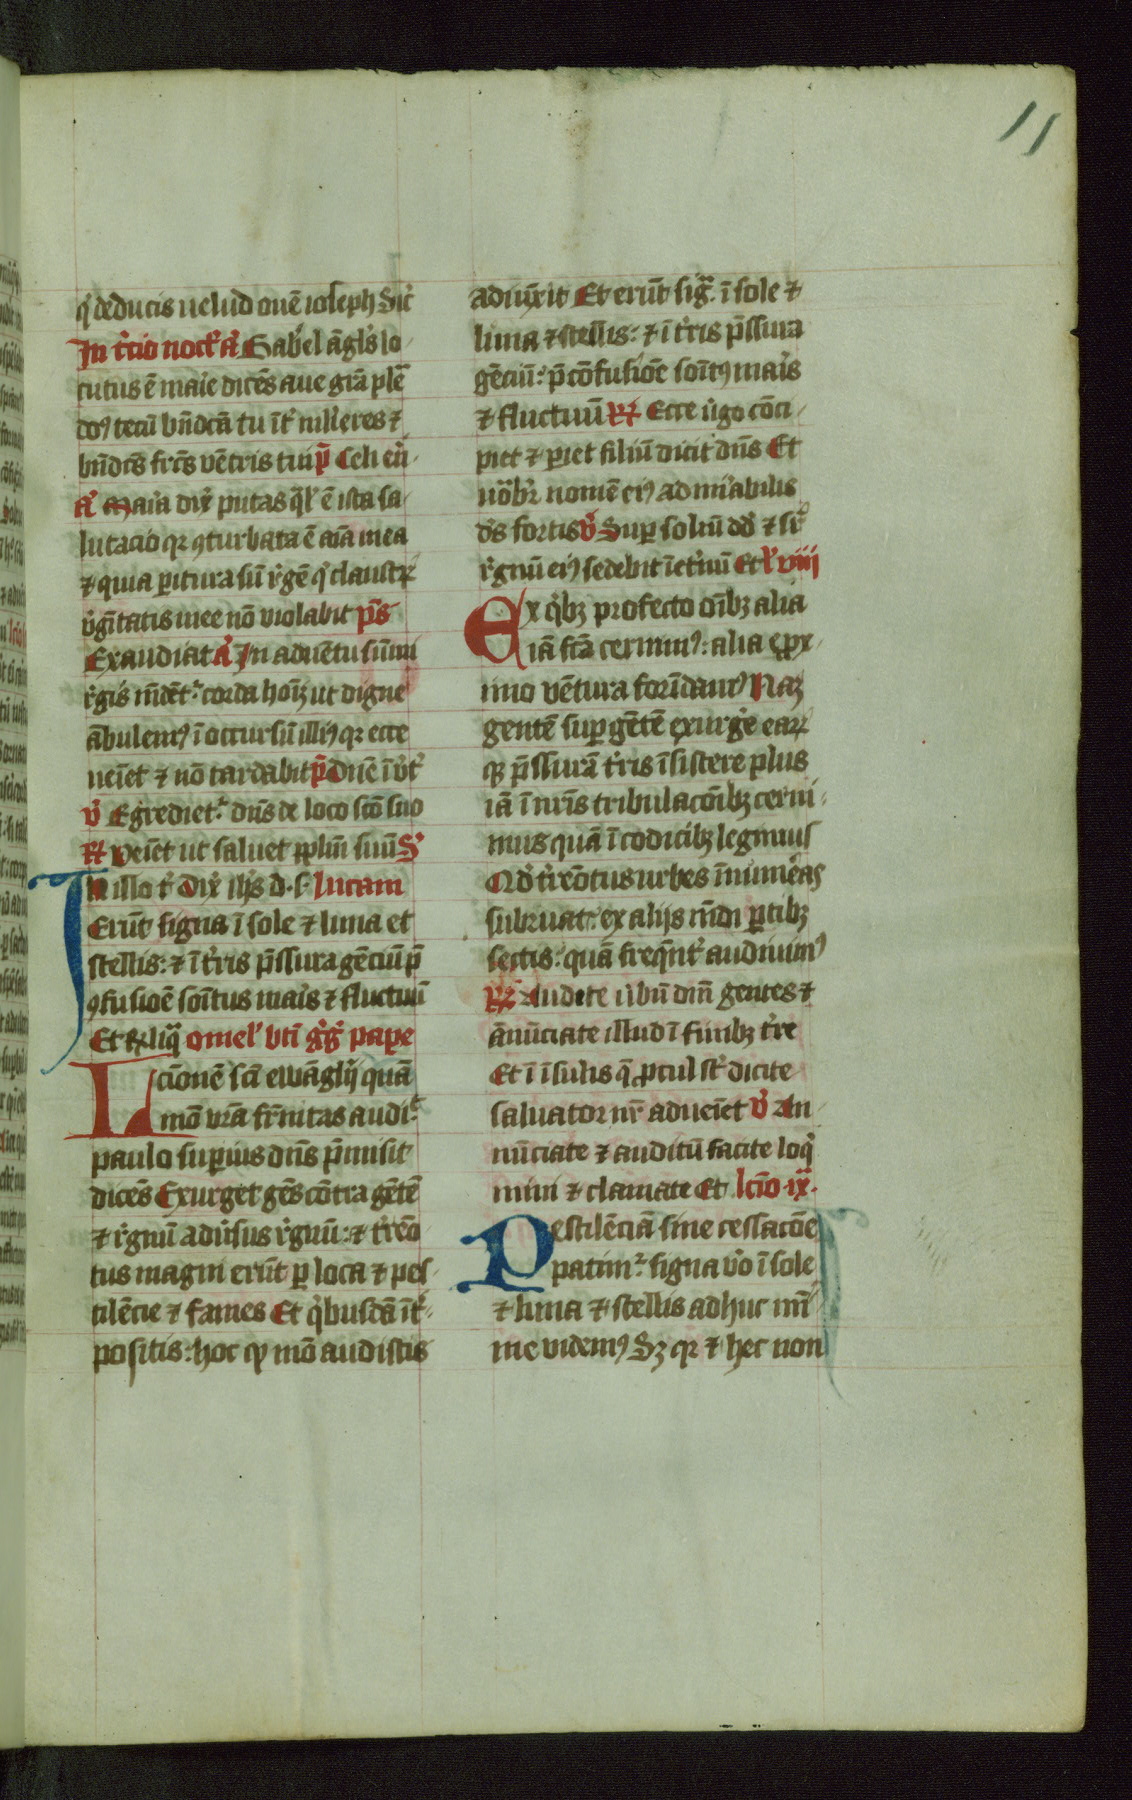 11
q̇ deducis uelud ouē ioseph Sic̄
In t̄cio noct̄ a̕ Gab̄el āgl̄s lo
cutus ē maīe dicēs aue gr̄a plē
dn̄s tecū bn̄dc̄a tu īt̄ ml̓ieres ⁊
bn̄dc̄s fr̄cs vētris tui p̄ Celi en̄
a̕ Maīa dix̄ putas q̄l̓ ē ista sa
lutacio qr ꝯturbata ē aīa mea
⁊ quia paritura sū r̄gē q̇ claustꝝ
v̓gītatis mee nō violabit p̄s
Exaudiat a̕ In aduētu sūmi
r̄gis mūdēt᷑ corda hoīꝫ ut digne
ābulemꝰ ī occursū illiꝰ qr ecce
ueīet ⁊ nō tardabit p̄ Dn̄e ī v̓t̓
v̓ Egredietᷣ dn̄s de loco sc̄o suo
℟ Veīet ut saluet pp̄lm̄ suū S̓
In illo t̓ Dix̄ ih̄s d. s̓. lucam
Erūt signa ī sole ⁊ luna et
stellis: ⁊ ī t̓ris p̄ssura gēciū p̄
ꝯfusioē soītus maīs ⁊ fluctuū
Et reliq̄ omel̓ bt̄i gg̓ pape
Lcīonē sc̄i ewāgl̄ij quā
mō vr̄a fr̄nitas audit᷑
paulo suꝑius dn̄s p̄misit
dicēs Exurget gēs cōtra gētē
⁊ r̄gnū adūsus r̄gnū: ⁊ t̓reō
tus magni erūt ꝑ loca ⁊ pes
tilēcie ⁊ fames Et q̇busdā īt̓
positis: hoc qꝫ mō audistis
adiūxit Et erūt siḡ ī sole ⁊
luna ⁊ stellis: ⁊ ī t̓ris p̄ssura
gēciū: p̄ cōfusiōe soītꝰ maīs
⁊ fluctuū ℟ Ecce v̓go cōci
piet ⁊ ꝑiet filiū dicit dn̄s Et
uōbit̓ nomē eiꝰ admīabilis
ds̄ fortis v̓ Suꝑ soliū dd̄ ⁊ sr̄
r̄gnū eiꝰ sedebit īet̓nū Et l̄ viii
Ex q̇bꝫ profecto oībꝫ alia
iā fc̄a cernimꝰ: alia ꝓx
imo vētura formidamꝰ Naꝫ
gentē suꝑ gētē exurgēe eaꝝ
qꝫ p̄ssurā t̓ris īsistere plus
iā ī nr̄is tribulacōibꝫ cerni
mus quā ī codicibꝫ legimus
Qd̓ t̓reōtus urbes īnumēas
subruat: ex alijs mūdi ꝑtibꝫ
sectis: quā freq̄nt̓ audiuimꝰ
℟ Audite v̓bū dn̄i gentes ⁊
ānūciate illud ī finibꝫ t̓re
Et ī īsulis q̄ ꝓcul st̄ dicite
saluator nr̄ adueīet v̓ An
nūciate ⁊ auditū facite loq̓
mini ⁊ clamate Et lcīo .ix.
Pestilēciā sine cessacōe
patim᷑ signa v̓o ī sole
⁊ luna ⁊ stellis adhuc mī
me videmꝰ Sꝫ qꝛ ⁊ hec non